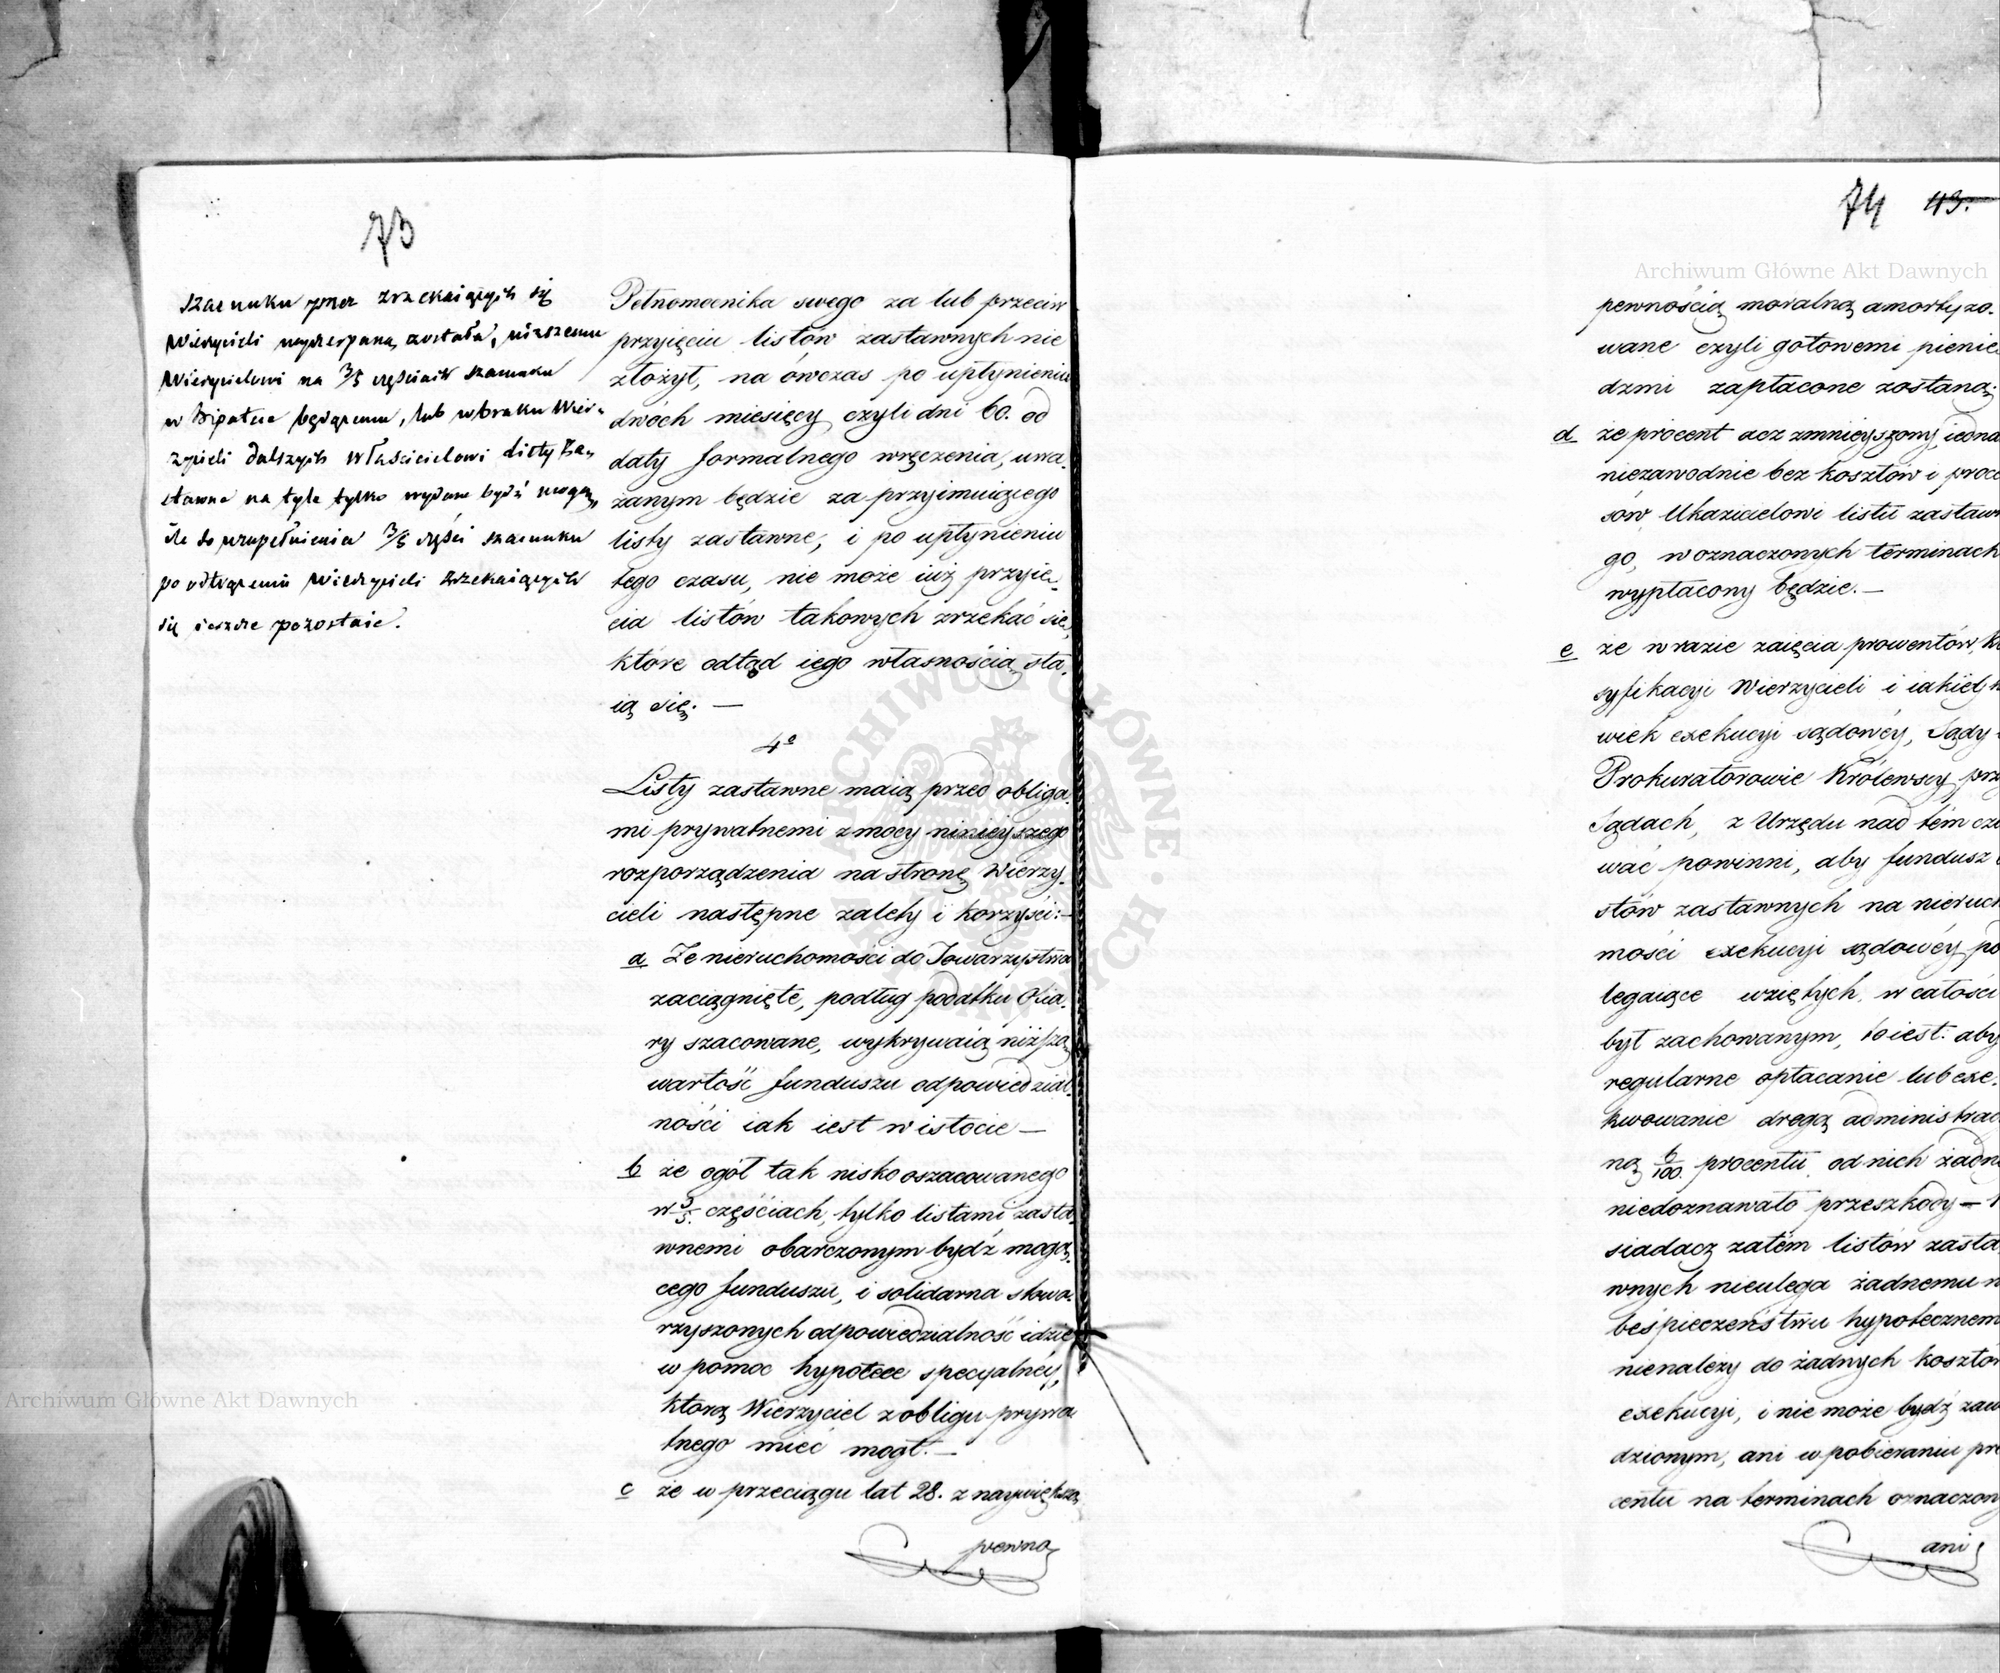 73
szacunku przez zrzekaiących się
Wierzycieli wyczerpaną została, niższemu
Wierzycielowi na 3/5 częściach szacunku
w Hipotece będącemu, lub w braku Wier-
zycieli dalszych Właścicielowi listy Za-
stawne na tyle tylko wydane bydź mogą,
ile do uzupełnienia 3/5 części szacunku
po odtrąceniu Wierzycieli zrzekaiących
się ieszcze pozostaie.
Pełnomocnika swego za lub przeciw
przyięciu listów zastawnych nie
złożył, na ówczas po upłynieniu
dwóch miesięcy czyli dni 60. od
daty formalnego wręczenia, uwa-
żanym będzie za przyimuiącego
listy zastawne, i po upłynieniu
tego czasu, nie może iuż przyię-
cia listów takowych zrzekać się,
które odtąd iego własnością sta-
ią się. —
4º
Listy zastawne maią przed obliga-
mi prywatnemi z mocy ninieyszego
rozporządzenia na stronę Wierzy-
cieli następne zalety i korzyści:—
a Że nieruchomości do Towarzystwa
zaciągnięte, podług podatku Ofia-
ry szacowane, wykrywaią niższą
wartość funduszu odpowiedzial-
ności iak iest w istocie —
b że ogół tak nisko oszacowanego
w 3/5. częściach, tylko listami zasta-
wnemi obarczonym bydź mogą-
cego funduszu, i solidarna stowa-
rzyszonych odpowiedzialność idzie
w pomoc hypotece specyalnéy,
którą Wierzyciel z obligu prywa-
tnego mieć mógł. —
c że w przeciągu lat 28. z naywiększą
pewno
74 43.
pewnością moralną amortyzo-
wane czyli gotowemi pienię
dzmi zapłacone zostaną;
d że procent acz zmnieyszony, iedna
niezawodnie bez kosztów i proce
sów, Ukazicielowi listu zastaw
go, w oznaczonych terminach
wypłacony będzie. —
e że w razie zaięcia prowentów, K
syfikacyi Wierzycieli i iakiejk
wiek exekucyi sądowéy, Sądy
Prokuratorowie Królewscy prz
Sądach, z Urzędu nad tém czu
wać powinni, aby fundusz
stów zastawnych na nieruch
mości exekucyi sądowéy po
legaiące wziętych, w całości
był zachowanym, to iest: aby
regularne opłacanie lub exe-
kwowanie drogą administrac
ną 6/100. procentu od nich żadn
niedoznawało przeszkody —
siadacz zatém listów zasta
wnych nieulega żadnemu n
beśpieczeństwu hypotecznem
nienależy do żadnych kosztów
exekucyi, i nie może bydź zaw
dzionym, ani w pobieraniu pro
centu na terminach oznaczony
ani
Archiwum Główne Akt Dawnych
Archiwum Główne Akt Dawnych
ARCHIWUM GŁÓWNE AKT DAWNYCH